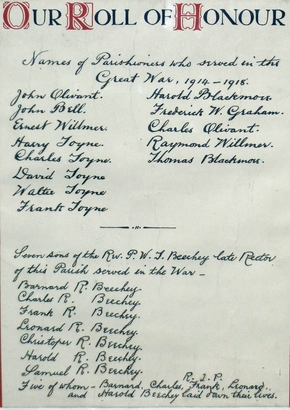 OUR ROLL OF HONOUR
Names of Parishioners who served in this
Great War, 1914-1918.
John Olivant. Harold Blackmow.
John Bell. Frederick W. Graham.
Ernest Willmer. Charles Olivant.
Harry Toyne. Raymond Willmer.
Charles Toyne. Thomas Blackmow.
David Toyne
Walter Toyne
Frank Toyne
Seven sons of the Rev. P. W. T. Beechey late Rector
of this Parish served in the War -
Barnard R. Beechey.
Charles R. Beechey.
Frank R. Beechey.
Leonard R. Beechey.
Christoper R. Beechey.
Harold R. Beechey.
Samuel R. Beechey.
R. I. P.
Five of whom - Barnard, Charles, Frank, Leonard,
and Harold Beechey laid down their lives.